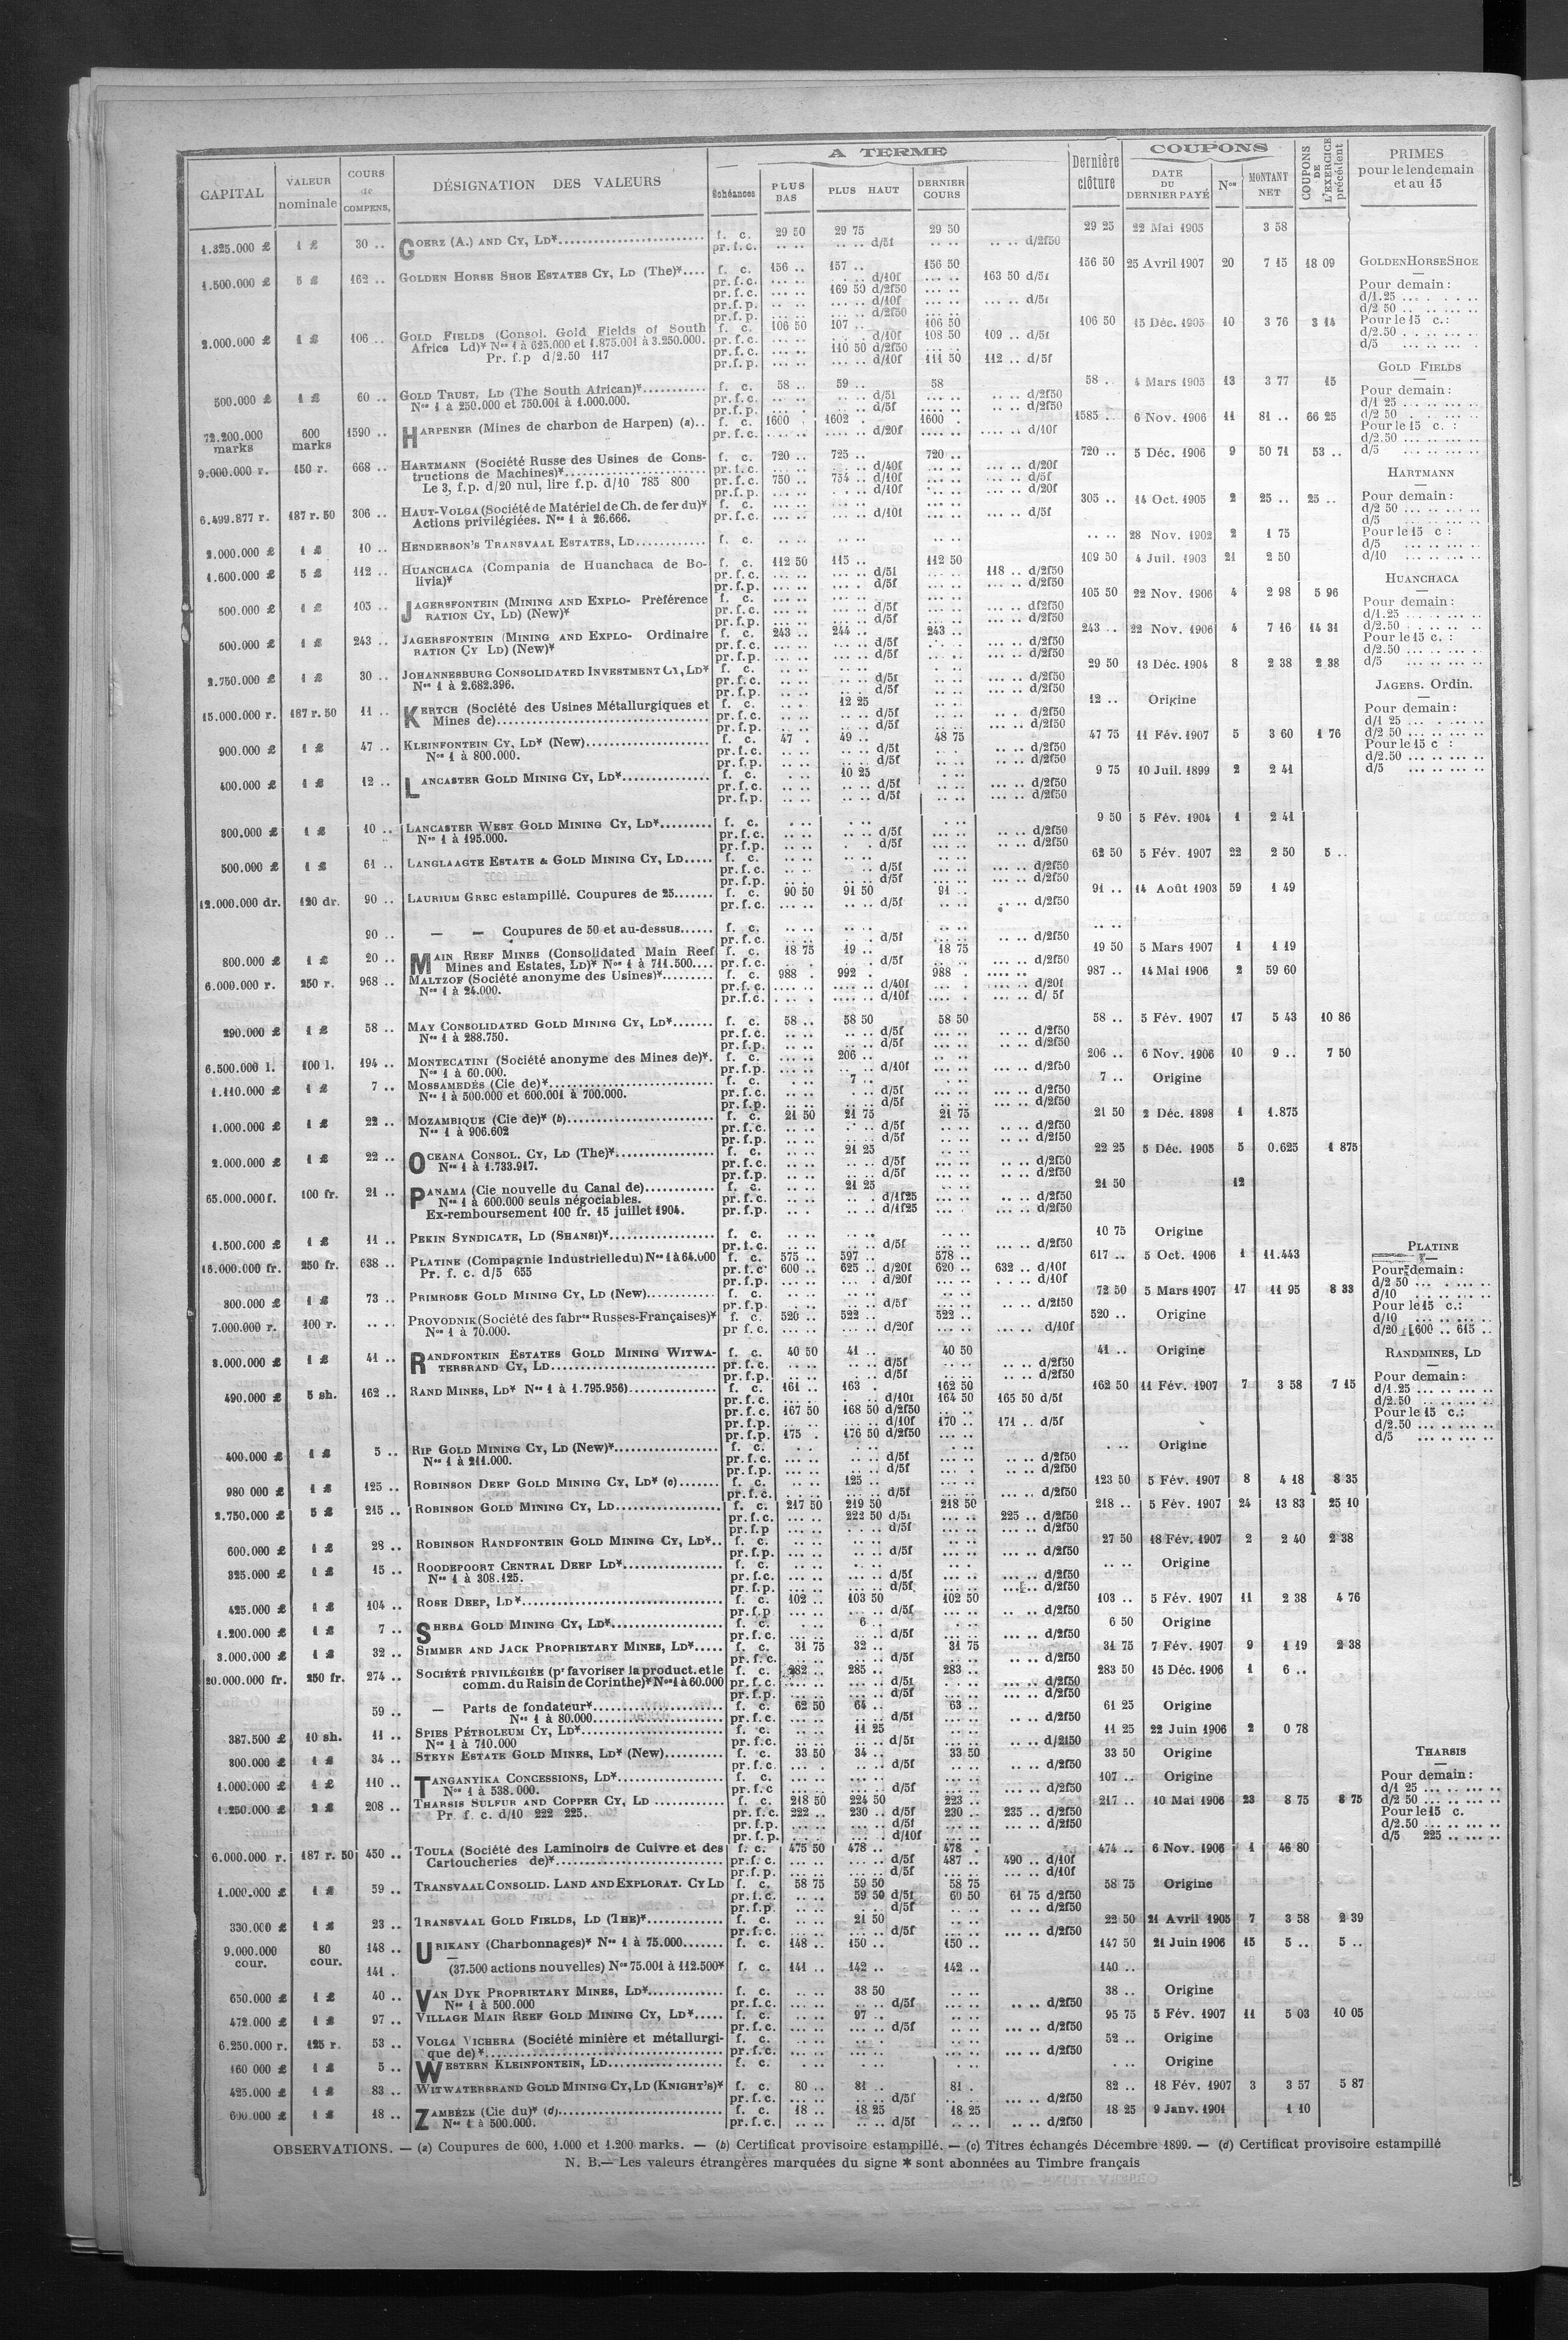 CAPITAL | VALEUR nominale | COURS de COMPENS. | DÉSIGNATION DES VALEURS | A TERME | Échéances | PLUS BAS | PLUS HAUT | DERNIER COURS | Dernière clôture | COUPONS | DATE DU DERNIER PAYÉ | Nos | MONTANT NET | COUPONS DE L'EXERCICE précédent | PRIMES pour le lendemain et au 15
1.325.000 £ | 1 £ | 30 .. | GOERZ (A.) AND CY, LD* | f. c. | 29 50 | 29 75 | 29 50 | 29 25 | 22 Mai 1905 | 3 58
pr. f. c. | d/5f | d/2f50
1.500.000 £ | 5 £ | 162 .. | GOLDEN HORSE SHOE ESTATES CY, LD (The)* | f. c. | 156 .. | 157 .. | 156 50 | 156 50 | 25 Avril 1907 | 20 | 7 15 | 18 09
pr. f. c. | d/10f | 163 50 d/5f
pr. f. c. | 169 50 d/2f50
pr. f. p. | d/10f | d/5f
pr. f. p. | d/2f50
2.000.000 £ | 1 £ | 106 .. | GOLD FIELDS (Consol. Gold Fields of South | f. c. | 106 50 | 107 .. | 106 50 | 106 50 | 15 Déc. 1905 | 10 | 3 76 | 3 14
Africa Ld)* Nos 1 à 625.000 et 1.875.001 à 3.250.000. | pr. f. c. | d/10f | 108 50 | 109 .. d/5f
Pr. f.p d/2.50 117 | pr. f. c. | 110 50 d/2f50
pr. f. p. | d/10f | 111 50 | 112 .. d/5f
500.000 £ | 1 £ | 60 .. | GOLD TRUST, LD (The South African)* | f. c. | 58 .. | 59 .. | 58 | 58 . | 4 Mars 1905 | 13 | 3 77 | 15
Nos 1 à 250.000 et 750.001 à 1.000.000. | pr. f. c. | d/5f | d/2f50
pr. f. p. | d/5f | d/2f50
72.200.000 marks | 600 marks | 1590 .. | HARPENER (Mines de charbon de Harpen) (a) | f. c. | 1600 | 1602 | 1600 | 1585 | 6 Nov. 1906 | 11 | 81 .. | 66 25
pr. f. c. | d/20f | d/10f
9.000.000 r. | 150 r. | 668 .. | HARTMANN (Société Russe des Usines de Cons- | f. c. | 720 .. | 725 .. | 720 .. | 720 .. | 5 Déc. 1906 | 9 | 50 71 | 53 ..
tructions de Machines)* | pr. f. c. | d/40f | d/20f
Le 3, f.p. d/20 nul, lire f.p. d/10 785 800 | pr. f. c. | 750 .. | 754 .. d/10f | d/5f
pr. f. p. | d/10f | d/20f
6.499.877 r. | 187 r. 50 | 306 .. | HAUT-VOLGA (Société de Matériel de Ch. de fer du)* | f. c. | 305 .. | 14 Oct. 1905 | 2 | 25 .. | 25 ..
Actions privilégiées. Nos 1 à 26.666. | pr. f. c. | d/10f | d/5f
2.000.000 £ | 1 £ | 10 .. | HENDERSON'S TRANSVAAL ESTATES, LD | f. c. | 28 Nov. 1902 | 2 | 1 75
1.600.000 £ | 5 £ | 112 .. | HUANCHACA (Compania de Huanchaca de Bo- | f. c. | 112 50 | 115 .. | 112 50 | 109 50 | 4 Juil. 1903 | 21 | 2 50
livia)* | pr. f. c. | d/5f | 118 .. d/2f50
pr. f. p. | d/5f | d/2f50
500.000 £ | 1 £ | 103 .. | JAGERSFONTEIN (MINING AND EXPLO- Préférence | f. c. | 105 50 | 22 Nov. 1906 | 4 | 2 98 | 5 96
RATION CY, LD) (New)* | pr. f. c. | d/5f | d/2f50
pr. f. p. | d/5f | d/2f50
500.000 £ | 1 £ | 243 .. | JAGERSFONTEIN (MINING AND EXPLO- Ordinaire | f. c. | 243 .. | 244 .. | 243 .. | 243 .. | 22 Nov. 1906 | 4 | 7 16 | 14 31
RATION CY LD) (New)* | pr. f. c. | d/5f | d/2f50
pr. f. p. | d/5f | d/2f50
2.750.000 £ | 1 £ | 30 .. | JOHANNESBURG CONSOLIDATED INVESTMENT CY, LD* | f. c. | 29 50 | 13 Déc. 1904 | 8 | 2 38 | 2 38
Nos 1 à 2.682.396. | pr. f. c. | d/5f | d/2f50
pr. f. p. | d/5f | d/2f50
15.000.000 r. | 187 r. 50 | 11 .. | KERTCH (Société des Usines Métallurgiques et | f. c. | 12 25 | 12 .. | Origine
Mines de) | pr. f. c. | d/5f | d/2f50
pr. f. p. | d/5f | d/2f50
900.000 £ | 1 £ | 47 .. | KLEINFONTEIN CY, LD* (New) | f. c. | 47 . | 49 .. | 48 75 | 47 75 | 11 Fév. 1907 | 5 | 3 60 | 1 76
Nos 1 à 800.000. | pr. f. c. | d/5f | d/2f50
pr. f. p. | d/5f | d/2f50
400.000 £ | 1 £ | 12 .. | LANCASTER GOLD MINING CY, LD* | f. c. | 10 25 | 9 75 | 10 Juil. 1899 | 2 | 2 41
pr. f. c. | d/5f | d/2f50
pr. f. p. | d/5f | d/2f50
300.000 £ | 1 £ | 10 .. | LANCASTER WEST GOLD MINING CY, LD* | f. c. | 9 50 | 5 Fév. 1904 | 1 | 2 41
Nos 1 à 195.000. | pr. f. c. | d/5f | d/2f50
pr. f. p. | d/5f | d/2f50
500.000 £ | 1 £ | 61 .. | LANGLAAGTE ESTATE & GOLD MINING CY, LD | f. c. | 62 50 | 5 Fév. 1907 | 22 | 2 50 | 5 ..
pr. f. c. | d/5f | d/2f50
pr. f. p. | d/5f | d/2f50
12.000.000 dr. | 120 dr. | 90 .. | LAURIUM GREC estampillé. Coupures de 25 | f. c. | 90 50 | 91 50 | 91 .. | 91 .. | 14 Août 1903 | 59 | 1 49
pr. f. c. | d/5f | d/2f50
90 .. | — — Coupures de 50 et au-dessus | f. c.
pr. f. c. | d/5f | d/2f50
800.000 £ | 1 £ | 20 .. | MAIN REEF MINES (Consolidated Main Reef | f. c. | 18 75 | 19 .. | 18 75 | 19 50 | 5 Mars 1907 | 1 | 1 19
Mines and Estates, Ld)* Nos 1 à 711.500 | pr. f. c. | d/5f | d/2f50
6.000.000 r. | 250 r. | 968 .. | MALTZOF (Société anonyme des Usines)* | f. c. | 988 . | 992 . | 988 | 987 .. | 14 Mai 1906 | 2 | 59 60
Nos 1 à 24.000. | pr. f. c. | d/40f | d/20f
pr. f. c. | d/10f | d/ 5f
290.000 £ | 1 £ | 58 .. | MAY CONSOLIDATED GOLD MINING CY, LD* | f. c. | 58 .. | 58 50 | 58 50 | 58 .. | 5 Fév. 1907 | 17 | 5 43 | 10 86
Nos 1 à 288.750. | pr. f. c. | d/5f | d/2f50
pr. f. p. | d/5f | d/2f50
6.500.000 l. | 100 l. | 194 .. | MONTECATINI (Société anonyme des Mines de)*. | f. c. | 206 .. | 206 .. | 6 Nov. 1906 | 10 | 9 .. | 7 50
Nos 1 à 60.000. | pr. f. p. | d/10f | d/2f50
1.110.000 £ | 1 £ | 7 .. | MOSSAMEDÈS (Cie de)* | f. c. | 7 .. | 7 .. | Origine
Nos 1 à 500.000 et 600.001 à 700.000. | pr. f. c. | d/5f | d/2f50
pr. f. p. | d/5f | d/2f50
1.000.000 £ | 1 £ | 22 .. | MOZAMBIQUE (Cie de)* (b) | f. c. | 21 50 | 21 75 | 21 75 | 21 50 | 2 Déc. 1898 | 1 | 1.875
Nos 1 à 906.602 | pr. f. c. | d/5f | d/2f50
pr. f. p. | d/5f | d/2f50
2.000.000 £ | 1 £ | 22 .. | OCEANA CONSOL. CY, LD (The)* | f. c. | 21 25 | 22 25 | 5 Déc. 1905 | 5 | 0.625 | 1 875
Nos 1 à 1.733.917. | pr. f. c. | d/5f | d/2f50
pr. f. p. | d/5f | d/2f50
65.000.000 f. | 100 fr. | 21 .. | PANAMA (Cie nouvelle du Canal de) | f. c. | 21 25 | 21 50 | 12
Nos 1 à 600.000 seuls négociables. | pr. f. c. | d/1f25 | d/2f50
Ex-remboursement 100 fr. 15 juillet 1904. | pr. f. p. | d/1f25 | d/2f50
1.500.000 £ | 1 £ | 11 .. | PEKIN SYNDICATE, LD (SHANSI)* | f. c. | 10 75 | Origine
pr. f. c. | d/5f | d/2f50
16.000.000 fr. | 250 fr. | 638 .. | PLATINE (Compagnie Industrielle du) Nos 1 à 64.000 | f. c. | 575 .. | 597 .. | 578 .. | 617 .. | 5 Oct. 1906 | 1 | 11.443
Pr. f. c. d/5 655 | pr. f. c. | 600 .. | 625 .. d/20f | 620 .. | 632 .. d/10f
pr. f. p. | d/20f | d/10f
300.000 £ | 1 £ | 73 .. | PRIMROSE GOLD MINING CY, LD (New) | f. c. | 72 50 | 5 Mars 1907 | 17 | 11 95 | 8 33
pr. f. p. | d/5f | d/2f50
7.000.000 r. | 100 r. | PROVODNIK (Société des fabres Russes-Françaises)* | f. c. | 520 .. | 522 .. | 522 .. | 520 .. | Origine
Nos 1 à 70.000. | pr f. c. | d/20f | d/10f
3.000.000 £ | 1 £ | 41 .. | RANDFONTEIN ESTATES GOLD MINING WITWA- | f. c. | 40 50 | 41 .. | 40 50 | 41 .. | Origine
TERSRAND CY, LD | pr. f. c. | d/5f | d/2f50
pr. f. p. | d/5f | d/2f50
490.000 £ | 5 sh. | 162 .. | RAND MINES, LD* Nos 1 à 1.795.956) | f. c. | 161 .. | 163 . | 162 50 | 162 50 | 11 Fév. 1907 | 7 | 3 58 | 7 15
pr. f. c. | d/10f | 164 50 | 165 50 d/5f
pr. f. c. | 167 50 | 168 50 d/2f50
pr. f. p. | d/10f | 170 .. | 171 .. d/5f
pr. f. p. | 175 . | 176 50 d/2f50
400.000 £ | 1 £ | 5 .. | RIP GOLD MINING CY, LD (New)* | f. c. | Origine
Nos 1 à 211.000. | pr. f. c. | d/5f | d/2f50
pr. f. p. | d/5f | d/2f50
980 000 £ | 1 £ | 125 .. | ROBINSON DEEP GOLD MINING CY, LD* (c) | f. c. | 125 .. | 123 50 | 5 Fév. 1907 | 8 | 4 18 | 8 35
pr. f. c. | d/5f | d/2f50
2.750.000 £ | 5 £ | 215 .. | ROBINSON GOLD MINING CY, LD | f. c. | 217 50 | 219 50 | 218 50 | 218 .. | 5 Fév. 1907 | 24 | 13 83 | 25 10
pr. f. c. | 222 50 d/5f | 225 .. d/2f50
pr. f. p | d/5f | d/2f50
600.000 £ | 1 £ | 28 .. | ROBINSON RANDFONTEIN GOLD MINING CY, LD* | f. c. | 27 50 | 18 Fév. 1907 | 2 | 2 40 | 2 38
pr. f. p. | d/5f | d/2f50
325.000 £ | 1 £ | 15 .. | ROODEPOORT CENTRAL DEEP LD* | f. c. | Origine
Nos 1 à 308.125. | pr. f. c. | d/5f | d/2f50
pr. f. p. | d/5f | d/2f50
425.000 £ | 1 £ | 104 .. | ROSE DEEP, LD* | f. c. | 102 .. | 103 50 | 102 50 | 103 .. | 5 Fév. 1907 | 11 | 2 38 | 4 76
pr. f. p | d/5f | d/2f50
1.200.000 £ | 1 £ | 7 .. | SHEBA GOLD MINING CY, LD* | f. c. | 6 .. | 6 50 | Origine
pr. f. c. | d/5f | d/2f50
3.000.000 £ | 1 £ | 32 .. | SIMMER AND JACK PROPRIETARY MINES, LD* | f. c. | 31 75 | 32 .. | 31 75 | 31 75 | 7 Fév. 1907 | 9 | 1 19 | 2 38
pr. f. c. | d/5f | d/2f50
20.000.000 fr. | 250 fr. | 274 .. | SOCIÉTÉ PRIVILÉGIÉE (pr favoriser la product. et le | f. c. | 282 .. | 285 .. | 283 .. | 283 50 | 15 Déc. 1906 | 1 | 6 ..
comm. du Raisin de Corinthe)* Nos 1 à 60.000 | pr. f. c. | d/5f | d/2f50
pr. f. p. | d/5f | d/2f50
59 .. | — Parts de fondateur* | f. c. | 62 50 | 64 .. | 63 .. | 61 25 | Origine
Nos 1 à 80.000 | pr. f. c. | d/5f | d/2f50
387.500 £ | 10 sh. | 11 .. | SPIES PÉTROLEUM CY, LD* | f. c. | 11 25 | 11 25 | 22 Juin 1906 | 2 | 0 78
Nos 1 à 710.000 | pr. f. c. | d/5f | d/2f50
300.000 £ | 1 £ | 34 .. | STEYN ESTATE GOLD MINES, LD* (New) | f. c. | 33 50 | 34 .. | 33 50 | 33 50 | Origine
pr. f. c. | d/5f | d/2f50
1.000.000 £ | 1 £ | 110 .. | TANGANYIKA CONCESSIONS, LD* | f. c. | 107 .. | Origine
Nos 1 à 538.000. | pr. f. c | d/5f | d/2f50
1.250.000 £ | 2 £ | 208 .. | THARSIS SULFUR AND COPPER CY, LD | f. c. | 218 50 | 224 50 | 223 .. | 217 .. | 10 Mai 1906 | 23 | 8 75 | 8 75
Pr. f. c. d/10 222 225. | pr. f. c. | 222 .. | 230 .. d/5f | 230 .. | 235 .. d/2f50
pr. f. p. | d/5f | d/2f50
pr. f. p. | d/10f
6.000.000 r. | 187 r. 50 | 450 .. | TOULA (Société des Laminoirs de Cuivre et des | f. c. | 475 50 | 478 .. | 478 . | 474 .. | 6 Nov. 1906 | 1 | 46 80
Cartoucheries de)* | pr. f. c. | d/5f | 487 .. | 490 .. d/10f
pr. f. p. | d/5f | d/10f
1.000.000 £ | 1 £ | 59 .. | TRANSVAAL CONSOLID. LAND AND EXPLORAT. CY LD | f. c. | 58 75 | 59 50 | 58 75 | 58 75 | Origine
pr. f. c. | 59 50 d/5f | 60 50 | 61 75 d/2f50
pr. f. p. | d/5f | d/2f50
330.000 £ | 1 £ | 23 .. | TRANSVAAL GOLD FIELDS, LD (THE)* | f. c. | 21 50 | 22 50 | 21 Avril 1905 | 7 | 3 58 | 2 39
pr. f. c. | d/5f | d/2f50
9.000.000 cour. | 80 cour. | 148 .. | URIKANY (Charbonnages)* Nos 1 à 75.000 | f. c. | 148 .. | 150 .. | 150 .. | 147 50 | 21 Juin 1906 | 15 | 5 .. | 5 ..
141 . | — (37.500 actions nouvelles) Nos 75.001 à 112.500* | f. c. | 141 .. | 142 .. | 142 .. | 140 ..
650.000 £ | 1 £ | 40 .. | VAN DYK PROPRIETARY MINES, LD* | f. c. | 38 50 | 38 .. | Origine
Nos 1 à 500.000 | pr. f. c. | d/5f | d/2f50
472.000 £ | 1 £ | 97 .. | VILLAGE MAIN REEF GOLD MINING CY, LD* | f. c. | 97 .. | 95 75 | 5 Fév. 1907 | 11 | 5 03 | 10 05
pr. f. c. | d/5f | d/2f50
6.250.000 r. | 125 r. | 53 .. | VOLGA VICHERA (Société minière et métallurgi- | f. c. | 52 .. | Origine
que de)* | pr. f. c. | d/2f50
160 000 £ | 1 £ | 5 .. | WESTERN KLEINFONTEIN, LD | f. c. | Origine
425.000 £ | 1 £ | 83 .. | WITWATERSRAND GOLD MINING CY, LD (KNIGHT'S)* | f. c. | 80 .. | 81 .. | 81 . | 82 .. | 18 Fév. 1907 | 3 | 3 57 | 5 87
pr. f. c. | d/5f | d/2f50
600.000 £ | 1 £ | 18 .. | ZAMBÈZE (Cie du)* (d) | f. c. | 18 .. | 18 25 | 18 25 | 18 25 | 9 Janv. 1901 | 1 10
Nos 1 à 500.000. | pr. f. c. | d/5f | d/2f50
GOLDEN HORSE SHOE
Pour demain :
d/1.25
d/2 50
Pour le 15 c. :
d/2.50
d/5
GOLD FIELDS
Pour demain :
d/1 25
d/2 50
Pour le 15 c. :
d/2.50
d/5
HARTMANN
Pour demain :
d/2 50
d/5
Pour le 15 c :
d/5
d/10
HUANCHACA
Pour demain :
d/1.25
d/2.50
Pour le 15 c. :
d/2.50
d/5
JAGERS. Ordin.
Pour demain :
d/1 25
d/2 50
Pour le 15 c :
d/2.50
d/5
PLATINE
Pour demain :
d/2 50
d/10
Pour le 15 c.:
d/10
d/20 600 .. 615 ..
RANDMINES, LD
Pour demain :
d/1.25
d/2.50
Pour le 15 c.:
d/2.50
d/5
THARSIS
Pour demain :
d/1 25
d/2 50
Pour le 15 c.
d/2.50
d/5 225 ..
OBSERVATIONS. — (a) Coupures de 600, 1.000 et 1.200 marks. — (b) Certificat provisoire estampillé. — (c) Titres échangés Décembre 1899. — (d) Certificat provisoire estampillé
N. B.— Les valeurs étrangères marquées du signe * sont abonnées au Timbre français